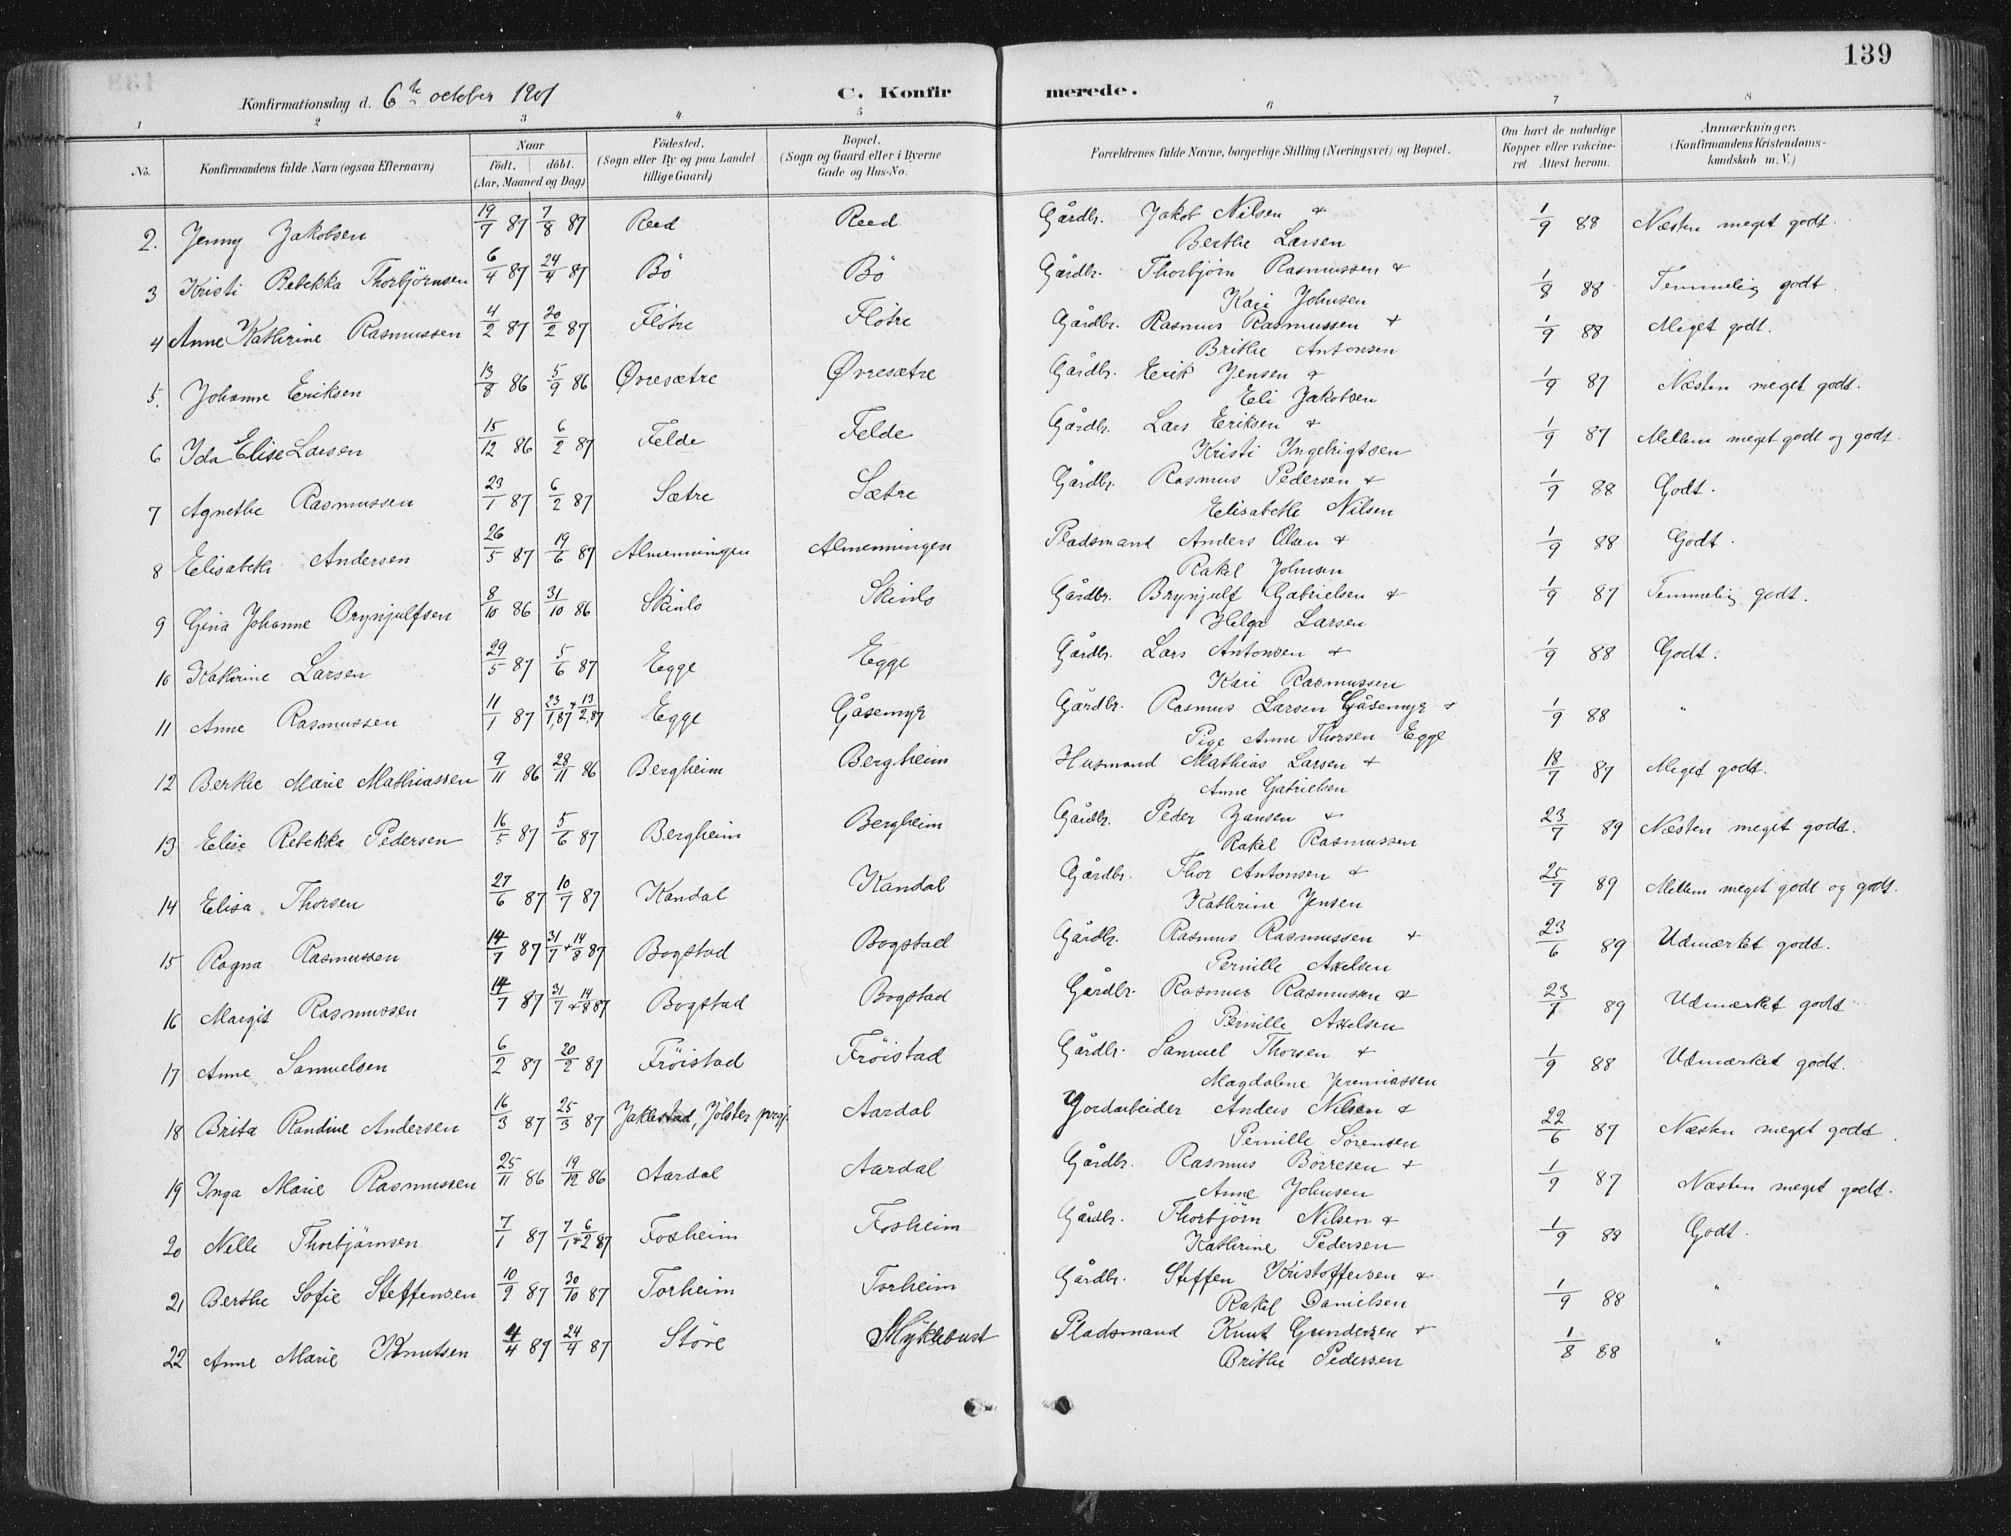 139
Konfirmationsdag d. 6te october 1901 C. Konfir merede.
1 2 3 4 5 6 7 8
No. Konfirmandens fulde Navn (ogsaa Efternavn) Naar födt. döbt. (Aar, Maaned og Dag) Födested. (Sogn eller By og paa Landet tillige Gaard) Bopæl. (Sogn og Gaard eller i Byerne Gade og Hus-No. Forældrenes fulde Navne, borgerlige Stilling (Næringsvei) og Bopæl. Om havt de naturlige Kopper eller vakcineret. Attest herom. Anmærkninger. (Konfirmandens Kristendomskundskab m. V.)
2. Jenny Jakobsen 19/7 87 7/8 87 Reed Reed Gårdbr. Jakob Nilsen & 1/9 88 Næsten meget godt.
Berthe Larsen
3 Kristi Rebekka Thorbjørnsen 6/4 87 24/4 87 Bö Bö Gårdbr. Thorbjørn Rasmussen & 1/8 88 Temmelig godt.
Kari Johnsen
4 Anne Kathrine Rasmussen 4/2 87 20/2 87 Flötre Flötre Gårdbr. Rasmus Rasmussen & 1/9 88 Meget godt.
Brithe Antonsen
5. Johanne Eriksen 13/8 86 5/9 86 Øvresætre Øvresætre Gårdbr. Erik Jensen & 1/9 87 Næsten meget godt.
Eli Jakobsen
6 Ida Elise Larsen 15/12 86 6/2 87 Felde Felde Gårdbr. Lars Eriksen & 1/9 87 Mellem meget godt og godt.
Kristi Ingebrigtsen
7 Agnethe Rasmussen 23/1 87 6/2 87 Sætre Sætre Gårdbr. Rasmus Pedersen & 1/9 88 Godt.
Elisabeth Nilsen
8 Elisabeth Andersen 26/5 87 19/6 87 Almenningen Almenningen Pladsmand Anders Olsen & 1/9 88 Godt.
Rakel Johnsen
9 Gina Johanne Brynjulfsen 8/10 86 31/10 86 Skinlo Skinlo Gårdbr. Brynjulf Gabrielsen & 1/9 87 Temmelig godt.
Helga Larsen
10 Kathrine Larsen 29/5 87 5/6 87 Egge Egge Gårdbr. Lars Antonsen & 1/9 88 Godt.
Kari Rasmussen
11 Anne Rasmussen 11/1 87 23/1,87 + 13/2,87 Egge Gåsemyr Gårdbr. Rasmus Larsen Gåsemyr & 1/9 88 "
Pige Anne Thorsen Egge
12 Berthe Marie Mathiassen 9/11 86 28/11 86 Bergheim Bergheim Husmand Mathias Larsen & 18/7 87 Meget godt.
Anne Gabrielsen
13 Elise Rebekka Pedersen 16/5 87 5/6 87 Bergheim Bergheim Gårdbr. Peder Jansen & 23/7 89 Næsten meget godt.
Rakel Rasmussen
14 Elisa Thorsen 27/6 87 10/7 87 Kandal Kandal Gårdbr. Thor Antonsen & 25/7 89 Mellem meget godt og godt.
Kathrine Jensen
15 Ragna Rasmussen 14/7 87 31/7 + 14/8 87 Bogstad Bogstad Gårdbr. Rasmus Rasmussen & 23/6 89 Udmærket godt.
Pernille Axelsen
16 Margit Rasmussen 14/7 87 31/7 + 14/8 87 Bogstad Bogstad Gårdbr. Rasmus Rasmussen & 23/7 89 Udmærket godt
Pernille Axelsen
17 Anne Samuelsen 6/2 87 20/2 87 Fröistad Fröistad Gårdbr. Samuel Thorsen & 1/9 88 Udmærket godt.
Magdalene Jeremiassen
18 Brita Randine Andersen 16/3 87 25/3 87 Jaklestad, Jölster prgj. Aardal Jordarbeider Anders Nilsen & 22/6 87 Næsten meget godt.
Pernille Sörensen
19 Inga Marie Rasmussen 25/11 86 19/12 86 Aardal Aardal Gårdbr. Rasmus Börresen & 1/9 87 Næsten meget godt.
Anne Johnsen
20 Nelle Thorbjörnsen 7/1 87 7/1 + 6/2 87 Fosheim Fosheim Gårdbr. Thorbjørn Nilsen & 1/9 88 Godt.
Kathrine Pedersen
21 Berthe Sofie Steffensen 10/9 87 30/10 87 Torheim Torheim Gårdbr. Steffen Kristoffersen & 1/9 88 "
Rakel Danielsen
22 Anne Marie Knutsen 4/4 87 24/4 87 Störe Myklebust Pladsmand Knut Gundersen & 1/8 88 "
Brithe Pedersen